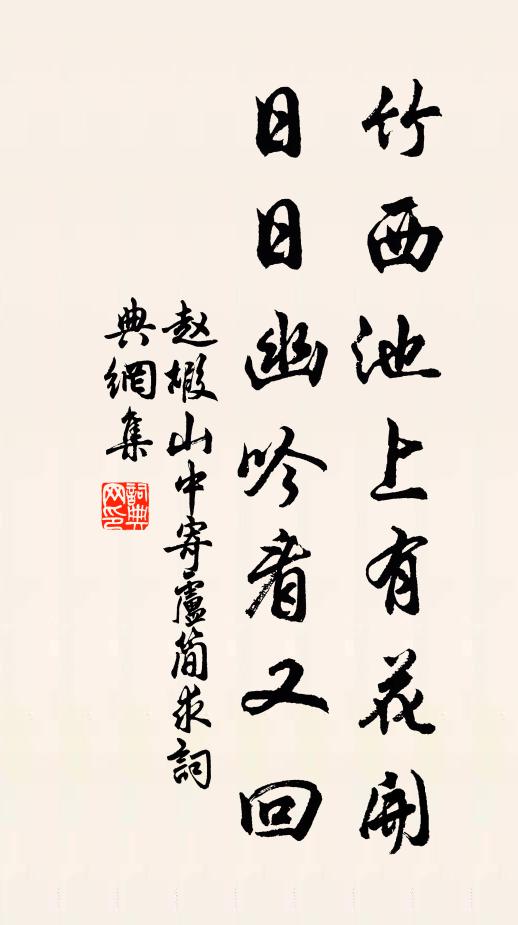 竹西池上有花開
日日幽吟看又回
趙嘏山中寄盧簡求詞
典網集
詞典
网印